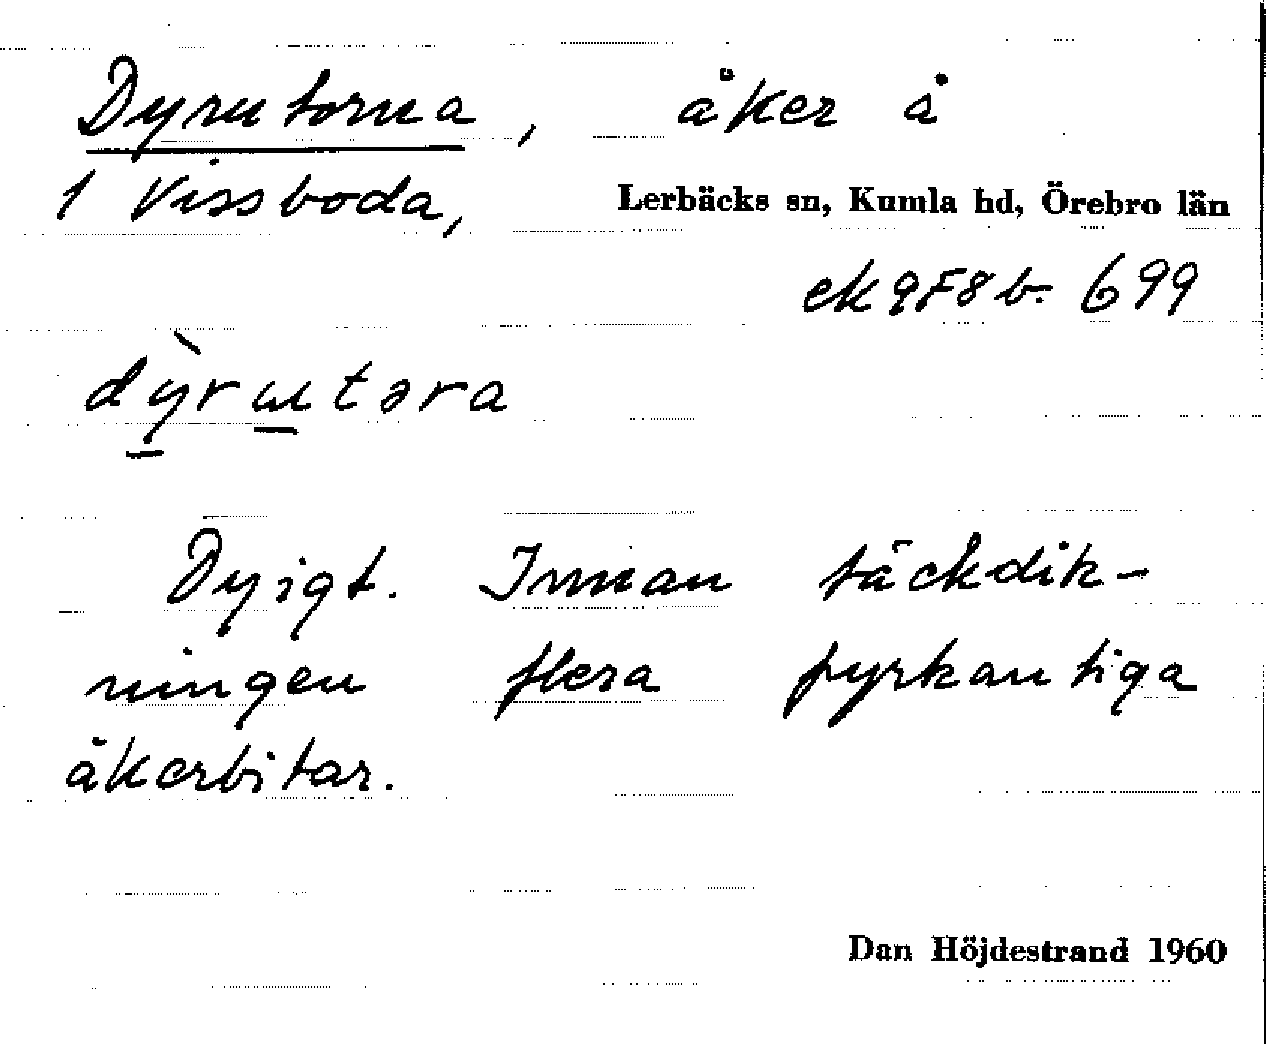 Dyrutorna, åker å
1 Vissboda, Lerbäcks sn, Kumla hd, Örebro län
ek 9F8b. 699
dỳrutəra
Dyigt. Innan täckdik-
ningen flera fyrkantiga
åkerbitar.
Dan Höjdestrand 1960